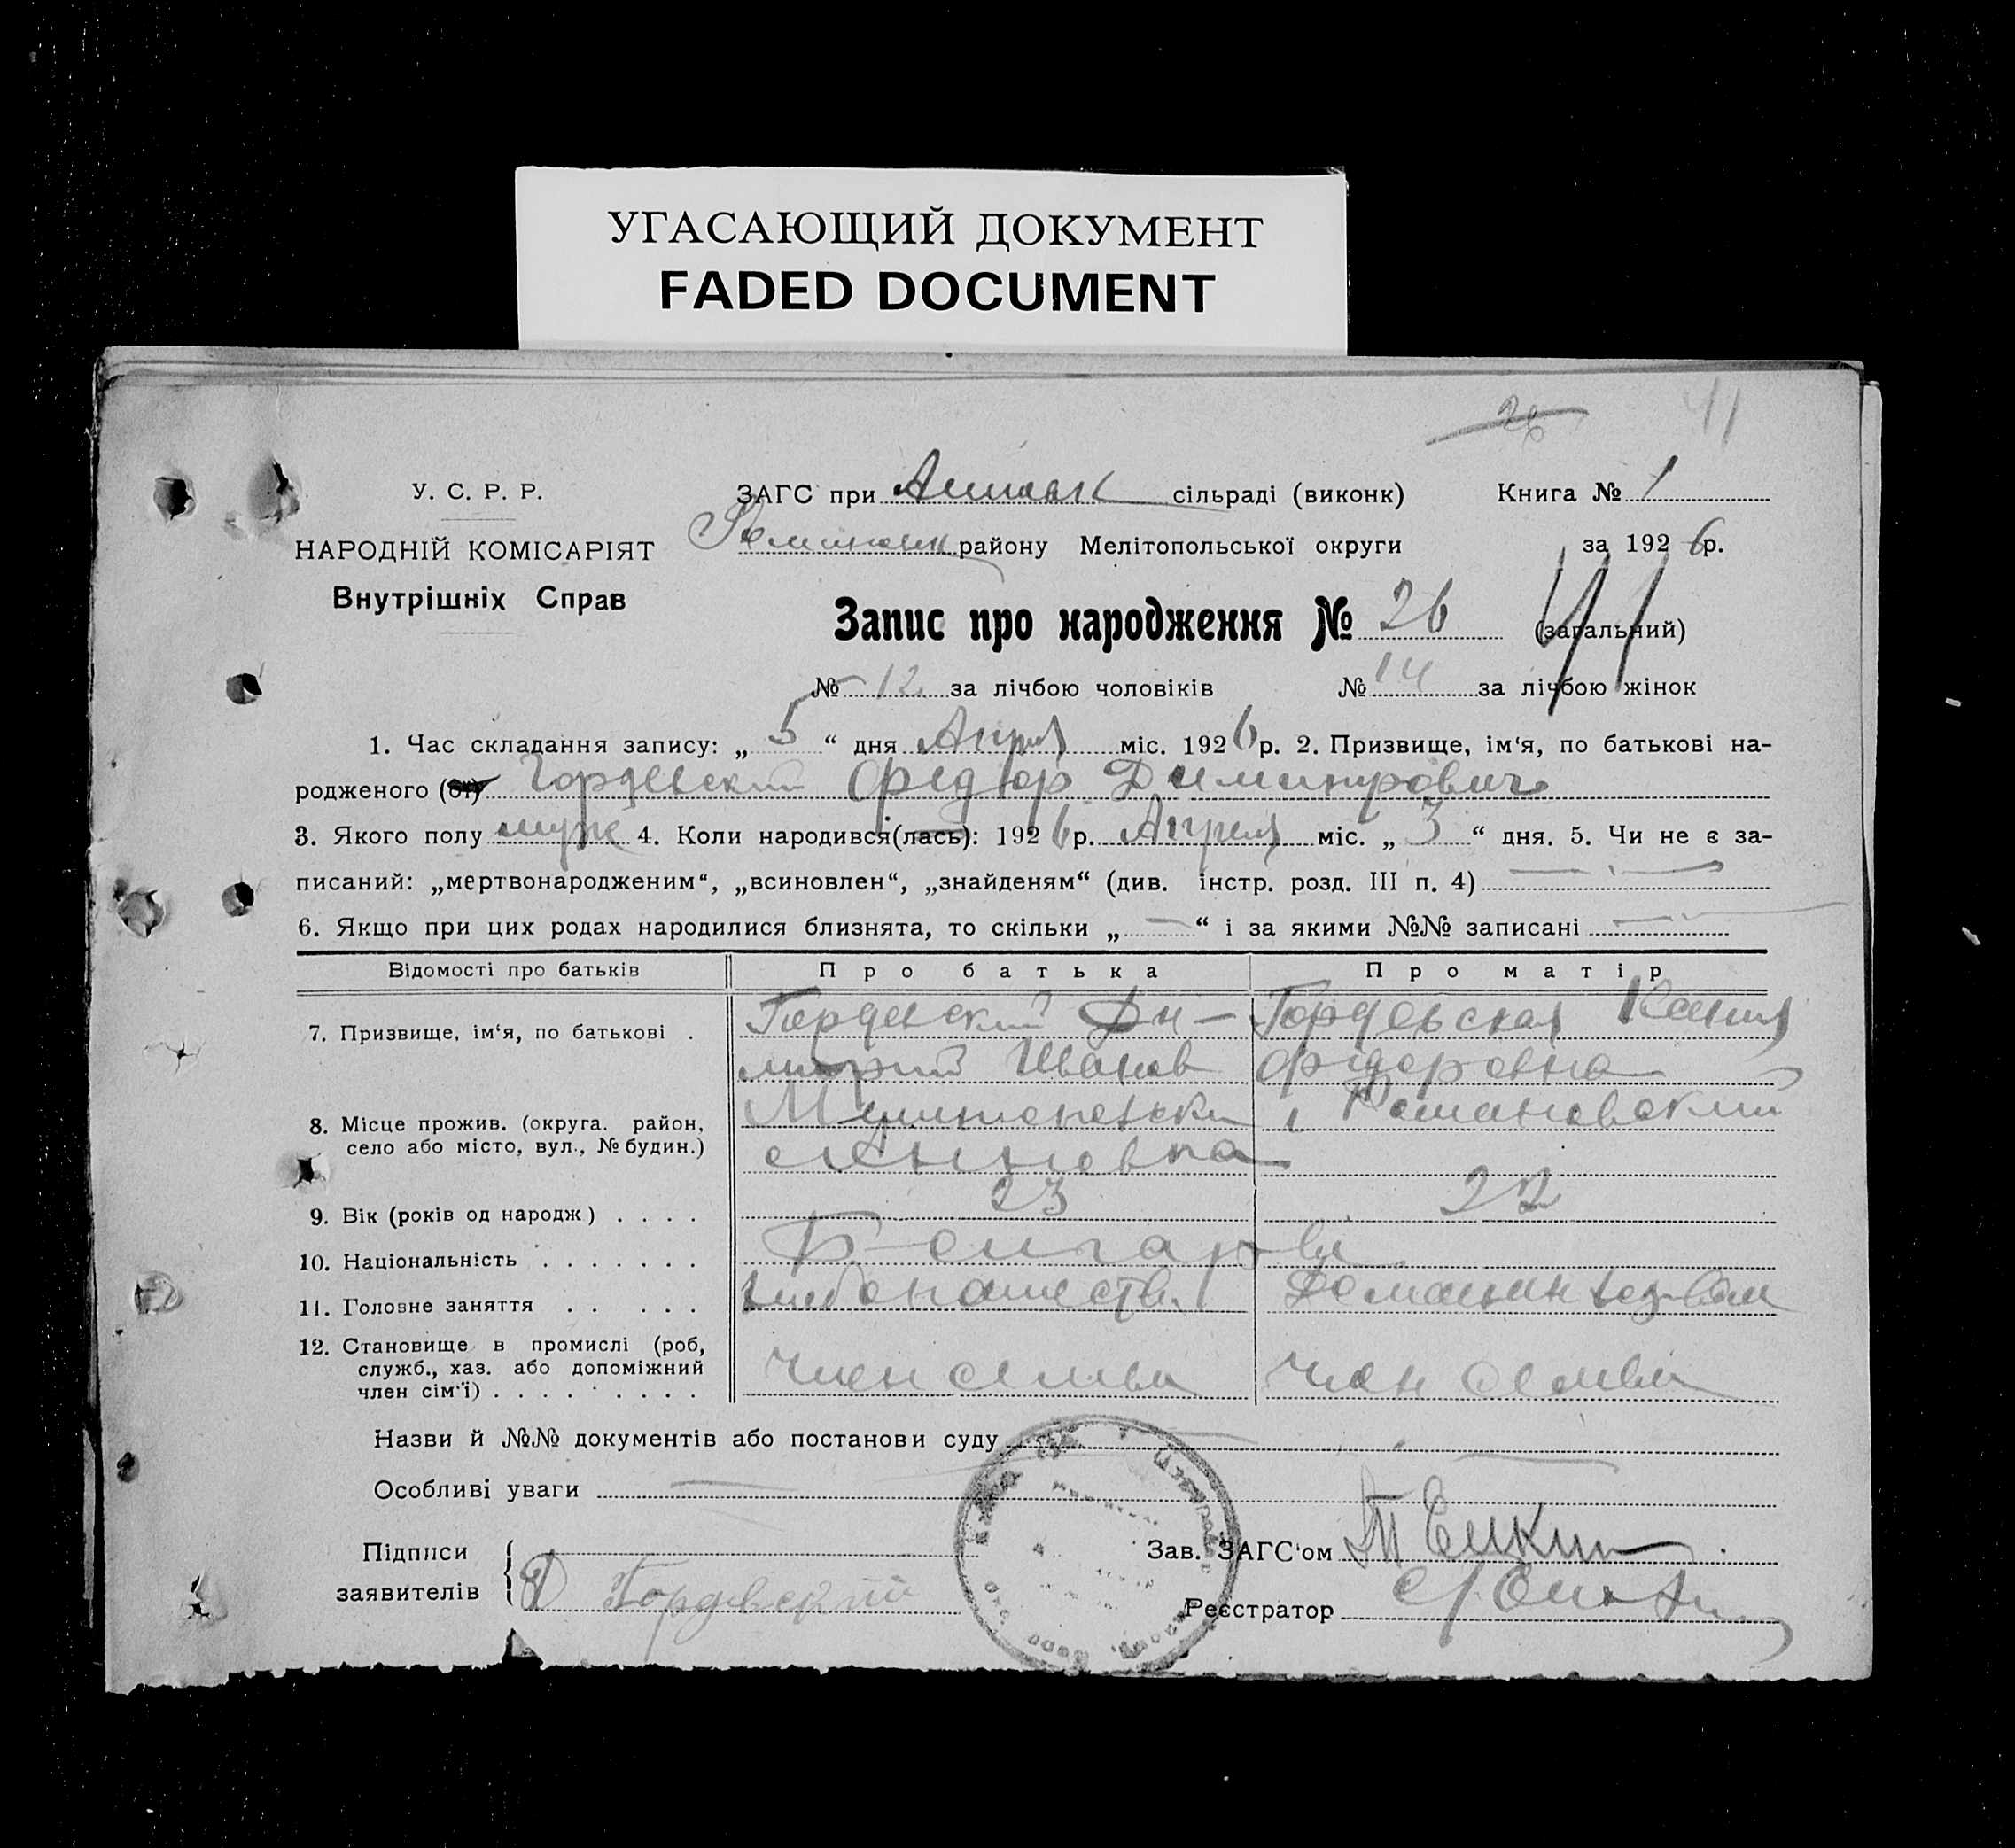 УГАСАЮЩИЙ ДОКУМЕНТ
FADED DOCUMENT
26 41
У. С. Р. Р.
НАРОДНІЙ КОМІСАРІЯТ
Внутрішніх Справ
ЗАГС при сільраді (виконк) Книга № 1
району Мелітопольської округи за 1926 р.
Запис про народження № 26 (загальний) 41
№ 12 за лічбою чоловіків № 14 за лічбою жінок
1. Час складання запису: „ 5 “ дня Апреля міс. 1926 р. 2. Призвище, ім‘я, по батькові на-
родженого (ої) Гордевский Федор Димитрович
3. Якого полу муж 4. Коли народився(лась): 1926 р. Апреля міс. „ 3 “ дня. 5. Чи не є за-
писаний: „мертвонародженим“, „всиновлен“, „знайденям“ (див. інстр. розд. III п. 4) —
6. Якщо при цих родах народилися близнята, то скільки „ — “ і за якими №№ записані —
Відомості про батьків Про батька Про матір
7. Призвище, ім‘я, по батькові . Гордевский Ди- Гордевская Ксения
митрий Иванов Федоровна
8. Місце прожив. (округа. район, Романовский
село або місто, вул., № будин.) Анновка
9. Вік (років од народж) . . . . 23 22
10. Національність . . . . . . . Болгары
11. Головне заняття . . . . .
12. Становище в промислі (роб,
служб., хаз. або допоміжний член семьи член семьи
член сім‘ї) . . . . . . . . .
Назви й №№ документів або постанови суду —
Особливі уваги —
Підписи Зав. ЗАГС‘ом
заявителів Д Гордевский Реєстратор